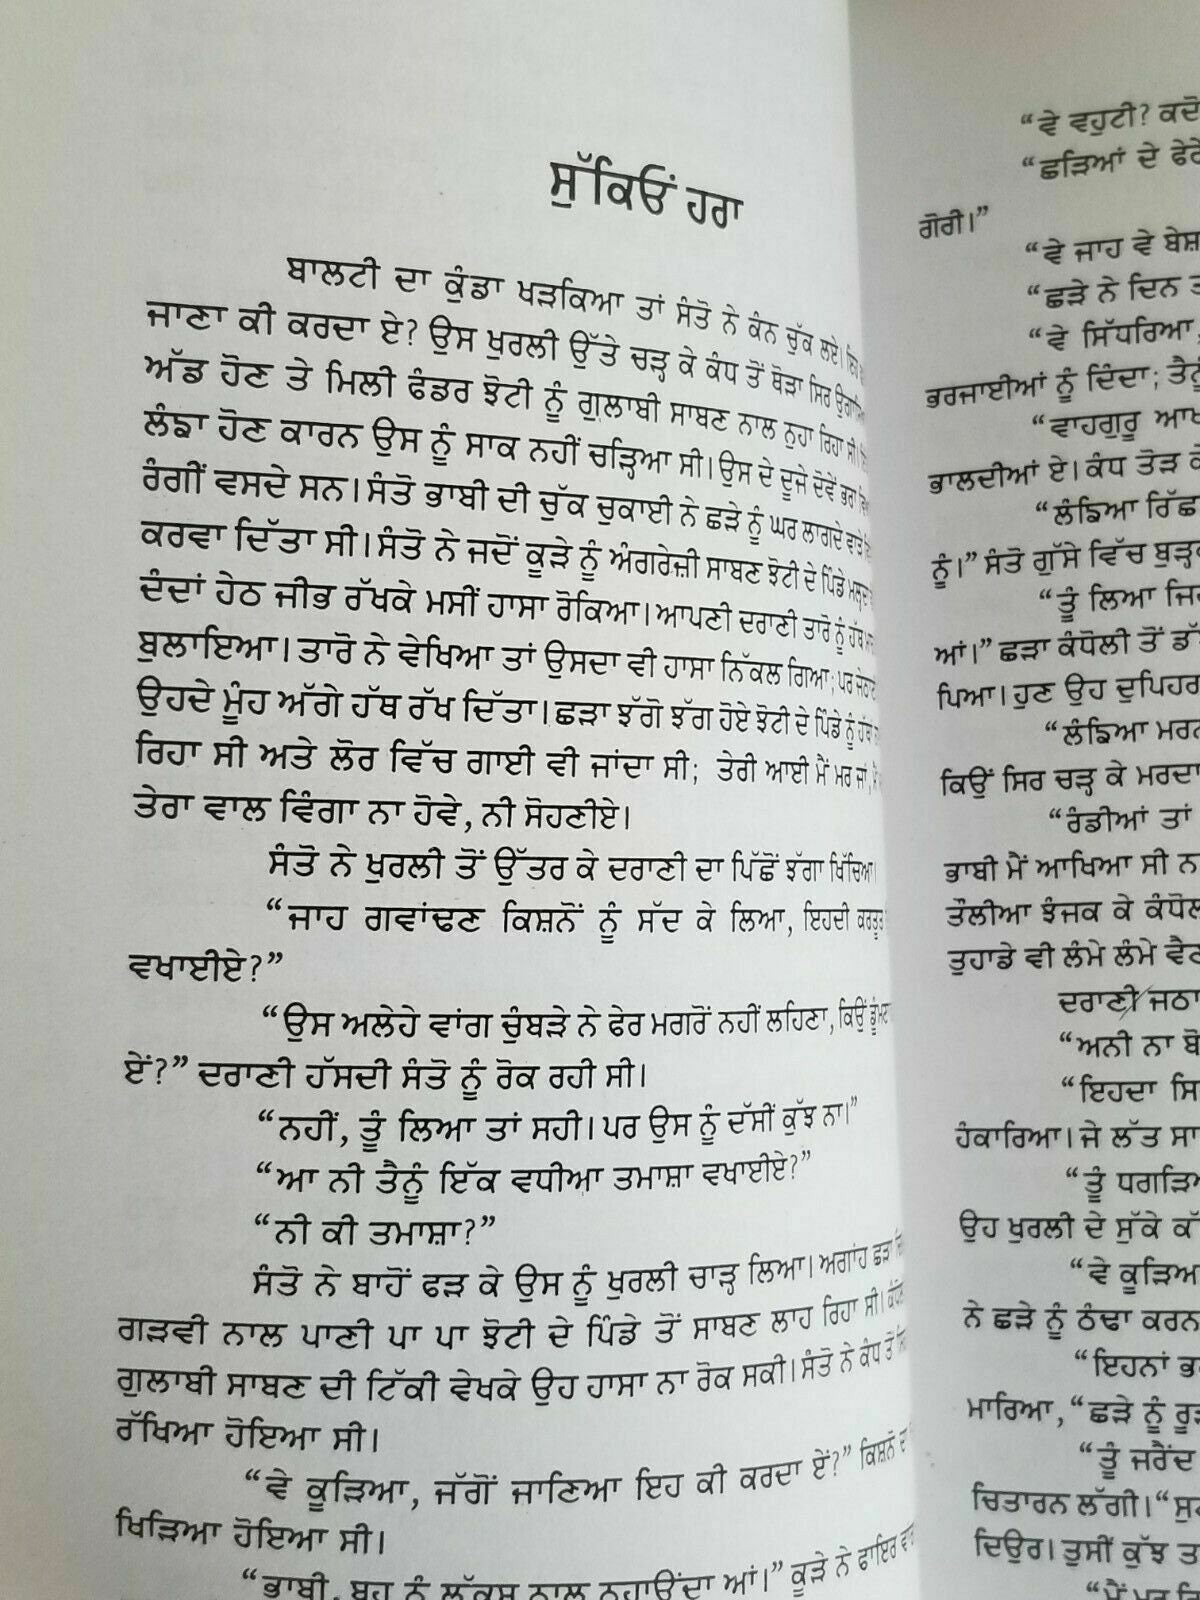 ਸੁੱਕਿਓਂ ਹਰਾ
ਬਾਲਟੀ ਦਾ ਕੁੰਡਾ ਖੜਕਿਆ ਤਾਂ ਸੰਤੋ ਨੇ ਕੰਨ ਚੁੱਕ ਲਏ।
ਜਾਣਾ ਕੀ ਕਰਦਾ ਏ? ਉਸ ਖੁਰਲੀ ਉੱਤੇ ਚੜ੍ਹ ਕੇ ਕੰਧ ਤੋਂ ਥੋੜਾ ਸਿਰ
ਅੱਡ ਹੋਣ ਤੇ ਮਿਲੀ ਫੰਡਰ ਝੋਟੀ ਨੂੰ ਗੁਲਾਬੀ ਸਾਬਣ ਨਾਲ ਨੁਹਾ ਰਿਹਾ ਸੀ।
ਲੰਙਾ ਹੋਣ ਕਾਰਨ ਉਸ ਨੂੰ ਸਾਕ ਨਹੀਂ ਚੜ੍ਹਿਆ ਸੀ। ਉਸ ਦੇ ਦੂਜੇ ਦੋਵੇਂ ਭਰਾ
ਰੰਗੀਂ ਵਸਦੇ ਸਨ। ਸੰਤੋ ਭਾਬੀ ਦੀ ਚੁੱਕ ਚੁਕਾਈ ਨੇ ਛੜੇ ਨੂੰ ਘਰ ਲਾਗਦੇ ਵਾੜੇ
ਕਰਵਾ ਦਿੱਤਾ ਸੀ। ਸੰਤੋ ਨੇ ਜਦੋਂ ਕੂੜੇ ਨੂੰ ਅੰਗਰੇਜ਼ੀ ਸਾਬਣ ਝੋਟੀ ਦੇ ਪਿੰਡੇ ਮਲਦਾ
ਦੰਦਾਂ ਹੇਠ ਜੀਭ ਰੱਖਕੇ ਮਸੀਂ ਹਾਸਾ ਰੋਕਿਆ। ਆਪਣੀ ਦਰਾਣੀ ਤਾਰੋ ਨੂੰ ਹੱਥ
ਬੁਲਾਇਆ। ਤਾਰੋ ਨੇ ਵੇਖਿਆ ਤਾਂ ਉਸਦਾ ਵੀ ਹਾਸਾ ਨਿੱਕਲ ਗਿਆ; ਪਰ
ਉਹਦੇ ਮੂੰਹ ਅੱਗੇ ਹੱਥ ਰੱਖ ਦਿੱਤਾ। ਛੜਾ ਝੱਗੋ ਝੱਗ ਹੋਏ ਝੋਟੀ ਦੇ ਪਿੰਡੇ ਨੂੰ ਹੱਥਾਂ
ਰਿਹਾ ਸੀ ਅਤੇ ਲੋਰ ਵਿੱਚ ਗਾਈ ਵੀ ਜਾਂਦਾ ਸੀ; ਤੇਰੀ ਆਈ ਮੈਂ ਮਰ ਜਾਂ,
ਤੇਰਾ ਵਾਲ ਵਿੰਗਾ ਨਾ ਹੋਵੇ, ਨੀ ਸੋਹਣੀਏ।
ਸੰਤੋ ਨੇ ਖੁਰਲੀ ਤੋਂ ਉੱਤਰ ਕੇ ਦਰਾਣੀ ਦਾ ਪਿੱਛੋਂ ਝੱਗਾ ਖਿੱਚਿਆ।
“ਜਾਹ ਗਵਾਂਢਣ ਕਿਸ਼ਨੋਂ ਨੂੰ ਸੱਦ ਕੇ ਲਿਆ, ਇਹਦੀ ਕਰਤੂਤ
ਵਖਾਈਏ?”
“ਉਸ ਅਲੇਹੇ ਵਾਂਗ ਚੁੰਬੜੇ ਨੇ ਫੇਰ ਮਗਰੋਂ ਨਹੀਂ ਲਹਿਣਾ, ਕਿਉਂ
ਏਂ?” ਦਰਾਣੀ ਹੱਸਦੀ ਸੰਤੋ ਨੂੰ ਰੋਕ ਰਹੀ ਸੀ।
“ਨਹੀਂ, ਤੂੰ ਲਿਆ ਤਾਂ ਸਹੀ। ਪਰ ਉਸ ਨੂੰ ਦੱਸੀਂ ਕੁੱਝ ਨਾ।”
“ਆ ਨੀ ਤੈਨੂੰ ਇੱਕ ਵਧੀਆ ਤਮਾਸ਼ਾ ਵਖਾਈਏ?”
“ਨੀ ਕੀ ਤਮਾਸ਼ਾ?”
ਸੰਤੋ ਨੇ ਬਾਹੋਂ ਫੜ ਕੇ ਉਸ ਨੂੰ ਖੁਰਲੀ ਚਾੜ੍ਹ ਲਿਆ। ਅਗਾਂਹ ਛੜਾ
ਗੜਵੀ ਨਾਲ ਪਾਣੀ ਪਾ ਪਾ ਝੋਟੀ ਦੇ ਪਿੰਡੇ ਤੋਂ ਸਾਬਣ ਲਾਹ ਰਿਹਾ ਸੀ।
ਗੁਲਾਬੀ ਸਾਬਣ ਦੀ ਟਿੱਕੀ ਵੇਖਕੇ ਉਹ ਹਾਸਾ ਨਾ ਰੋਕ ਸਕੀ। ਸੰਤੋ ਨੇ ਕੰਧ ਤੋਂ
ਰੱਖਿਆ ਹੋਇਆ ਸੀ।
“ਵੇ ਕੂੜਿਆ, ਜੱਗੋਂ ਜਾਣਿਆ ਇਹ ਕੀ ਕਰਦਾ ਏਂ?” ਕਿਸ਼ਨੋ ਦਾ
ਖਿੜਿਆ ਹੋਇਆ ਸੀ।
“ਭਾਬੀ, ਬੂਹ ਨੂੰ ਲੱਕਸ ਨਾਲ ਨਹਾਉਂਦਾ ਆਂ।” ਕੂੜੇ ਨੇ ਫਾਇਰ
“ਵੇ ਵਹੁਟੀ? ਕਦੋਂ
“ਛੜਿਆਂ ਦੇ ਫੇਰੇ
ਗੋਰੀ।”
“ਵੇ ਜਾਹ ਵੇ
“ਛੜੇ ਨੇ ਦਿਨ
“ਵੇ ਸਿੱਧਰਿਆ,
ਭਰਜਾਈਆਂ ਨੂੰ ਦਿੰਦਾ; ਤੈਨੂੰ
“ਵਾਹਗੁਰੂ
ਭਾਲਦੀਆਂ ਏ। ਕੰਧ ਤੋੜ
“ਲੰਙਿਆ ਰਿੱਛ
ਨੂੰ।” ਸੰਤੋ ਗੁੱਸੇ ਵਿੱਚ
“ਤੂੰ ਲਿਆ
ਆਂ।” ਛੜਾ ਕੰਧੋਲੀ ਤੋਂ
ਪਿਆ। ਹੁਣ ਉਹ ਦੁਪਿਹਰ
“ਲੰਙਿਆ
ਕਿਉਂ ਸਿਰ ਚੜ੍ਹ ਕੇ ਮਰਦਾ
“ਰੰਡੀਆਂ ਤਾਂ
ਭਾਬੀ ਮੈਂ ਆਖਿਆ ਸੀ
ਤੌਲੀਆ ਝੰਜਕ ਕੇ
ਤੁਹਾਡੇ ਵੀ ਲੰਮੇ ਲੰਮੇ
ਦਰਾਣੀ/ਜਠਾ
“ਅਨੀ ਨਾ
“ਇਹਦਾ
ਹੰਕਾਰਿਆ। ਜੇ ਲੱਤ
“ਤੂੰ
ਉਹ ਖੁਰਲੀ ਦੇ ਸੁੱਕੇ
“ਵੇ ਕੂੜਿਆ
ਨੇ ਛੜੇ ਨੂੰ ਠੰਢਾ ਕਰਨ
“ਇਹਨਾਂ
ਮਾਰਿਆ, “ਛੜੇ ਨੂੰ
“ਤੂੰ ਜਰੈਂਦ
ਚਿਤਾਰਨ ਲੱਗੀ। “
ਦਿਉਰ। ਤੁਸੀਂ ਕੁੱਝ
“ਮੈਂ ਮਰ